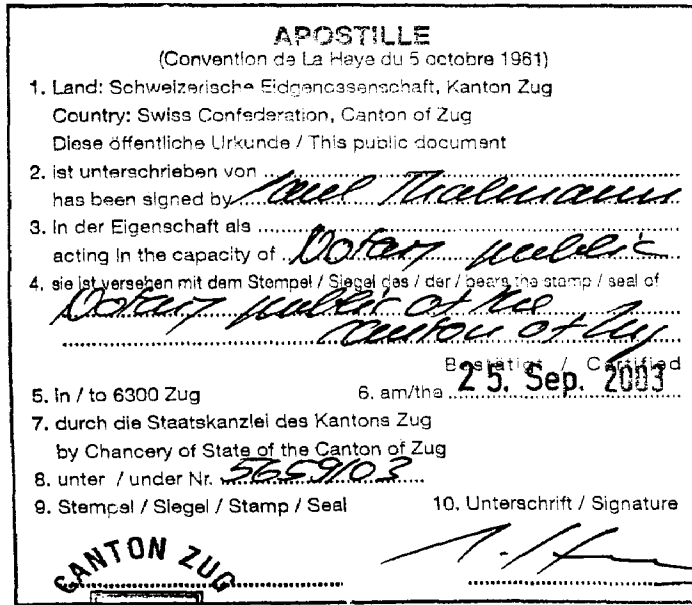 APOSTILLE
(Convention de La Haye du 5 octobre 1961)
1. Land: Schweizerische Eidgenossenschaft, Kanton Zug
Country: Swiss Confederation, Canton of Zug
Diese öffentliche Urkunde / This public document
2. ist unterschrieben von
has been signed by Paul Thalmann
3. In der Eigenschaft als
acting in the capacity of Notary public
4. sie ist versehen mit dem Stempel / Siegel des / der / bears the stamp / seal of
Notary public of the
canton of Zug
Bestätigt / Certified
5. in / to 6300 Zug 6. am/the 25. Sep. 2003
7. durch die Staatskanzlei des Kantons Zug
by Chancery of State of the Canton of Zug
8. unter / under Nr. 5659/03
9. Stempel / Siegel / Stamp / Seal 10. Unterschrift / Signature
CANTON ZUG